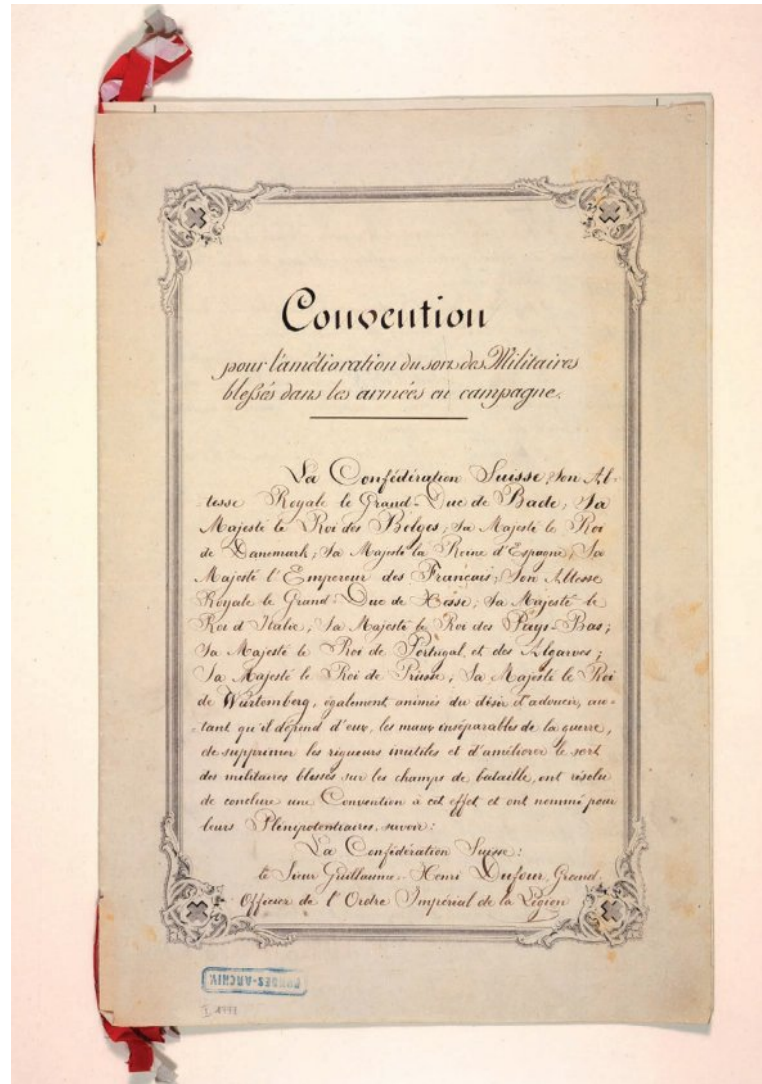 Convention
pour l'amélioration du sort des Militaires
blessés dans les armées en campagne.
La Confédération Suisse; Son Al-
tesse Royale le Grand-Duc de Bade; Sa
Majesté le Roi des Belges; Sa Majesté le Roi
de Danemark; Sa Majesté la Reine d'Espagne; Sa
Majesté l'Empereur des Français; Son Altesse
Royale le Grand-Duc de Hesse; Sa Majesté le
Roi d'Italie; Sa Majesté le Roi des Pays-Bas;
Sa Majesté le Roi de Portugal et des Algarves;
Sa Majesté le Roi de Prusse, Sa Majesté le Roi
de Würtemberg, également animés du désir d'adoucir, au-
tant qu'il dépend d'eux, les maux inséparables de la guerre,
de supprimer les rigueurs inutiles et d'améliorer le sort
des militaires blessés sur les champs de bataille, ont résolu
de conclure une Convention à cet effet et ont nommé pour
leurs Plénipotentiaires, savoir:
La Confédération Suisse:
le Sieur Guillaume-Henri Dufour, Grand
Officier de l'Ordre Impérial de la Légion
BUNDES-ARCHIV